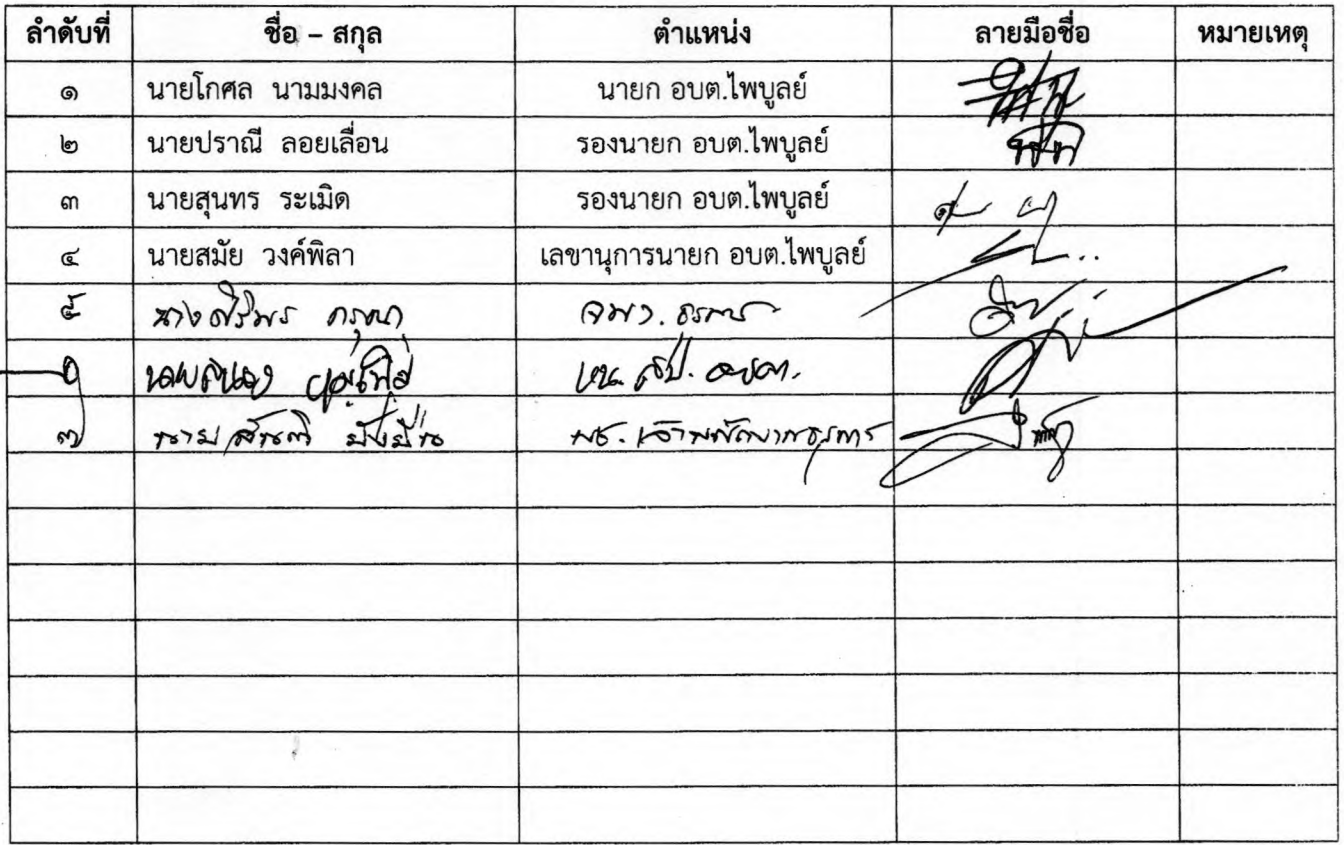 ลำดับที่ ชื่อ – สกุล ตำแหน่ง ลายมือชื่อ หมายเหตุ
๑ นายโกศล นามมงคล นายก อบต.ไพบูลย์
๒ นายปราณี ลอยเลื่อน รองนายก อบต.ไพบูลย์
๓ นายสุนทร ระเมิด รองนายก อบต.ไพบูลย์
๔ นายสมัย วงค์พิลา เลขานุการนายก อบต.ไพบูลย์
๕ นางศิริพร กรุณา จพง. ธุรการ
๖ นาย หน. สป. อบต.
๗ นายสันติ ยั่งยืน ผช. เจ้าพนักงานธุรการ